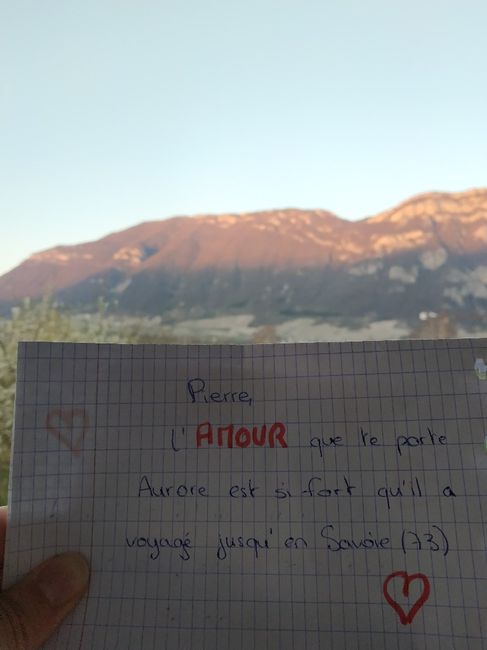 Pierre,
l'AMOUR que te porte
Aurore est si fort qu'il a
voyagé jusqu'en Savoie (73)